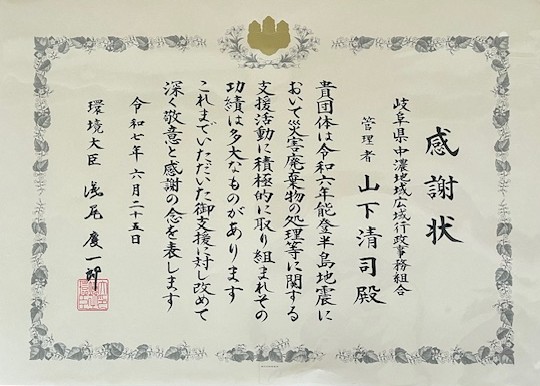 感謝状
岐阜県中濃地域広域行政事務組合
管理者 山下清司殿
貴団体は令和六年能登半島地震に
おいて災害廃棄物の処理等に関する
支援活動に積極的に取り組まれその
功績は多大なものがあります
これまでいただいた御支援に対し改めて
深く敬意と感謝の念を表します
令和七年六月二十五日
環境大臣 浅尾慶一郎